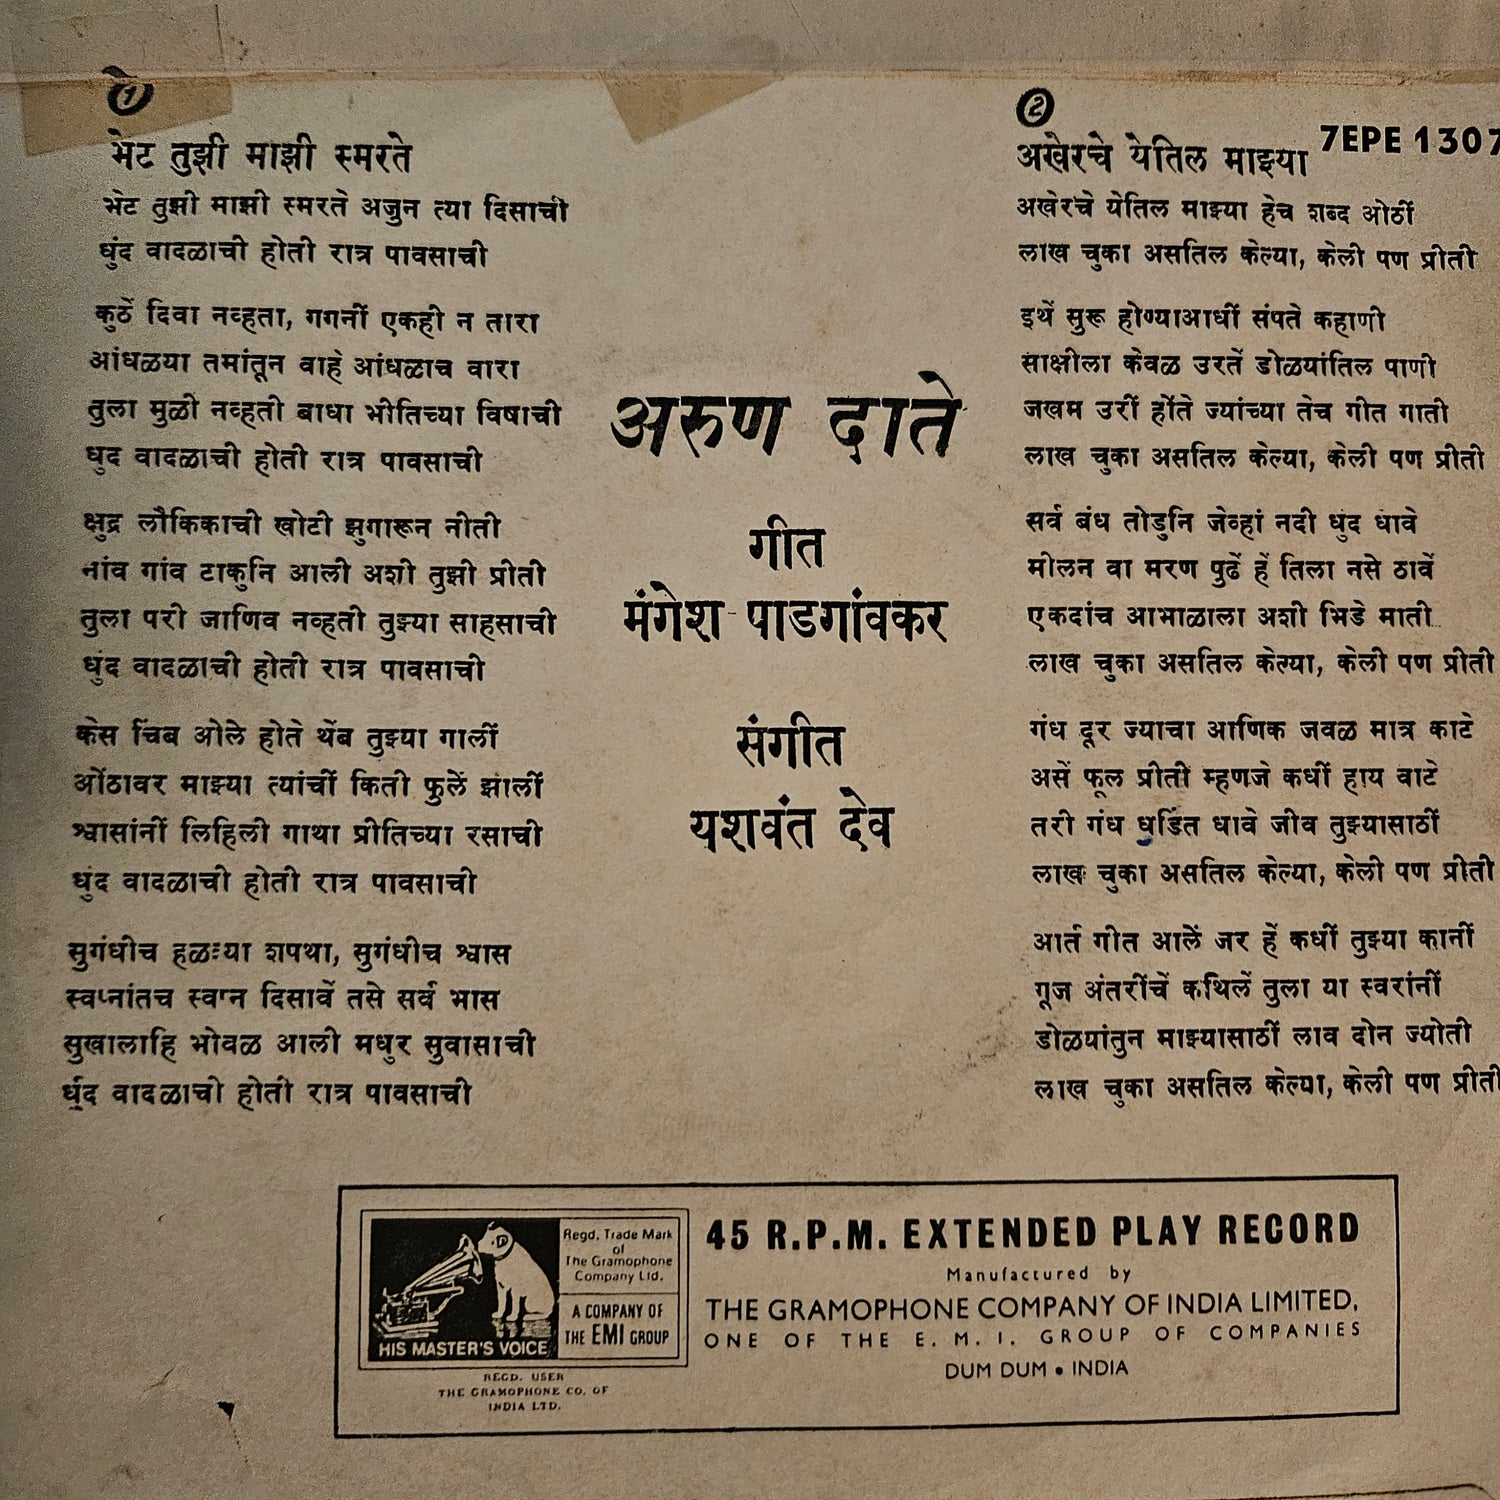 १
भेट तुझी माझी स्मरते
भेट तुझी माझी स्मरते अजुन त्या दिसाची
धुंद वादळाची होती रात्र पावसाची
कुठें दिवा नव्हता, गगनीं एकही न तारा
आंधळया तमांतून वाहे आंधळाच वारा
तुला मुळी नव्हती बाधा भीतिच्या विषाची
धुद वादळाची होती रात्र पावसाची
क्षुद्र लौकिकाची खोटी झुगारून नीती
नांव गांव टाकुनि आली अशी तुझी प्रीती
तुला परी जाणिव नव्हती तुझ्या साहसाची
धुंद वादळाची होती रात्र पावसाची
केस चिंब ओले होते थेंब तुझ्या गालीं
ओंठावर माझ्या त्यांचीं किती फुलें झालीं
श्वासांनीं लिहिली गाथा प्रीतिच्या रसाची
धुंद वादळाची होती रात्र पावसाची
सुगंधीच हळव्या शपथा, सुगंधीच श्वास
स्वप्नांतच स्वप्न दिसावें तसे सर्व भास
सुखालाहि भोवळ आली मधुर सुवासाची
धुंद वादळाची होती रात्र पावसाची
अरुण दाते
गीत
मंगेश पाडगांवकर
संगीत
यशवंत देव
२
7EPE 1307
अखेरचे येतिल माझ्या
अखेरचे येतिल माझ्या हेच शब्द ओठीं
लाख चुका असतिल केल्या, केली पण प्रीती
इथें सुरू होण्याआधीं संपते कहाणी
साक्षीला केवळ उरतें डोळयांतिल पाणी
जखम उरीं होंते ज्यांच्या तेच गीत गाती
लाख चुका असतिल केल्या, केली पण प्रीती
सर्व बंध तोडुनि जेव्हां नदी धुंद धावे
मीलन वा मरण पुढें हें तिला नसे ठावें
एकदांच आभाळाला अशी भिडे माती
लाख चुका असतिल केल्या, केली पण प्रीती
गंध दूर ज्याचा आणिक जवळ मात्र काटे
असें फूल प्रीती म्हणजे कधीं हाय वाटे
तरी गंध धुडिंत धावे जीव तुझ्यासाठीं
लाख चुका असतिल केल्या, केली पण प्रीती
आर्त गीत आलें जर हें कधीं तुझ्या कानीं
गूज अंतरींचें कथिलें तुला या स्वरांनीं
डोळयांतुन माझ्यासाठीं लाव दोन ज्योती
लाख चुका असतिल केल्या, केली पण प्रीती
HIS MASTER'S VOICE
Regd. Trade Mark
of
The Gramophone
Company Ltd.
A COMPANY OF
THE EMI GROUP
REGD. USER
THE GRAMOPHONE CO. OF
INDIA LTD.
45 R.P.M. EXTENDED PLAY RECORD
Manufactured by
THE GRAMOPHONE COMPANY OF INDIA LIMITED.
ONE OF THE E. M. I. GROUP OF COMPANIES
DUM DUM • INDIA